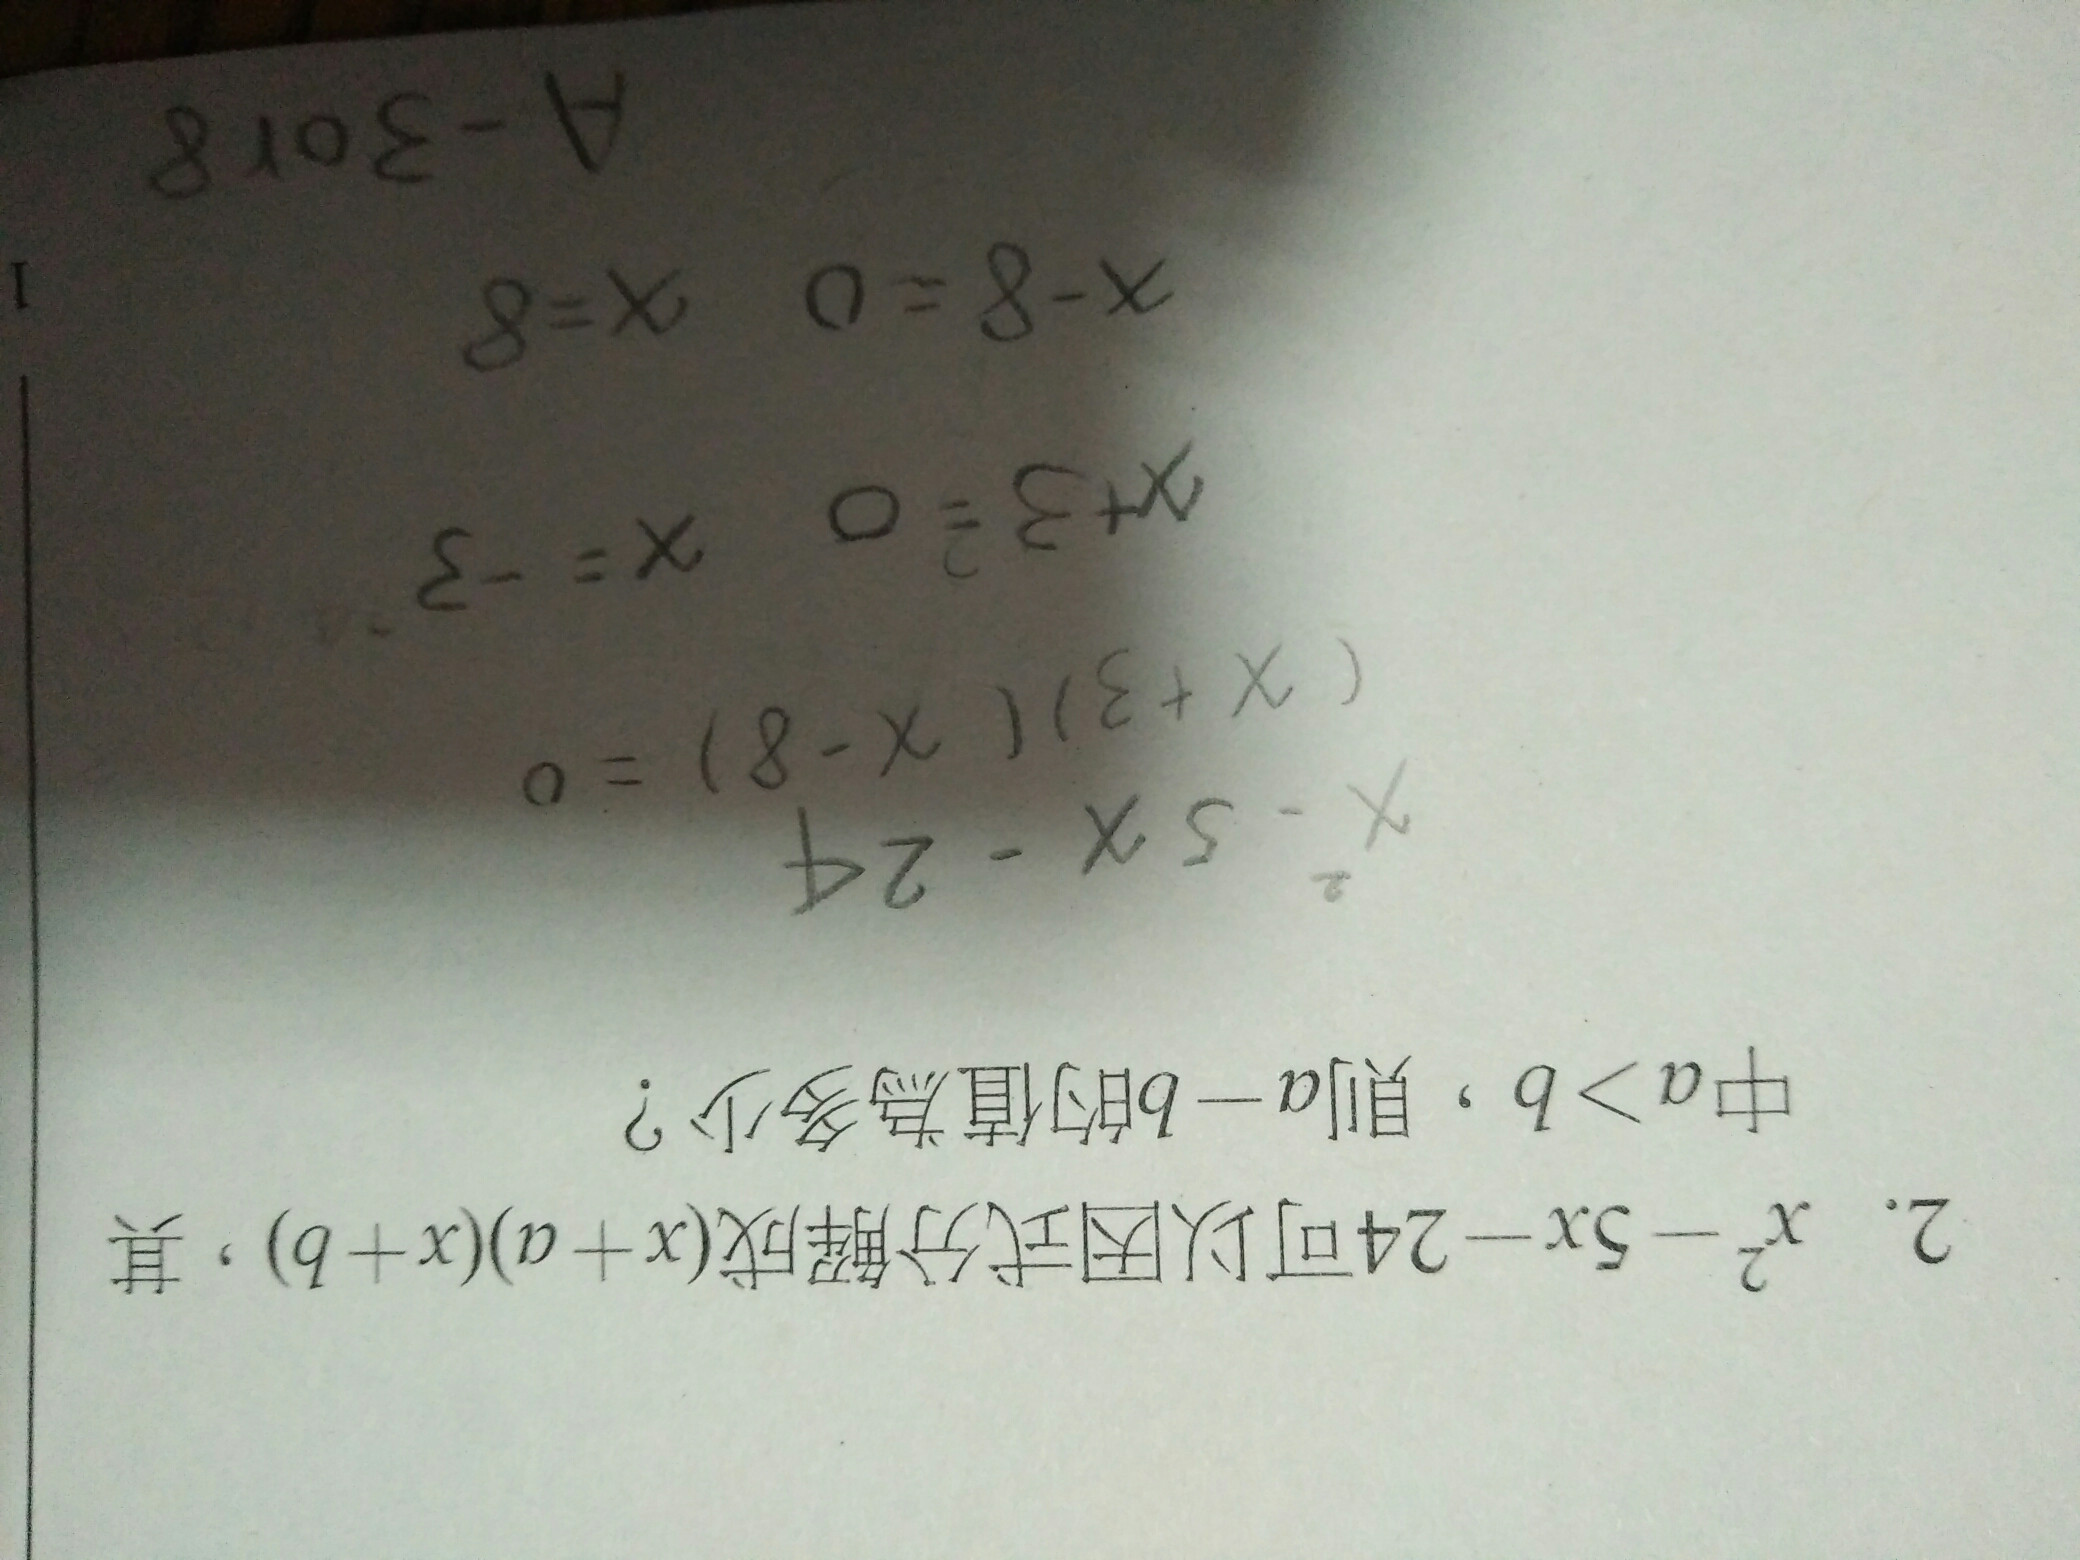 2. x² − 5x − 24可以因式分解成(x + a)(x + b)，其
中a > b，則a − b的值為多少？
x² - 5x - 24
(x + 3)(x - 8) = 0
x+3 = 0 x = -3
x - 8 = 0 x = 8
A - 3 or 8
1